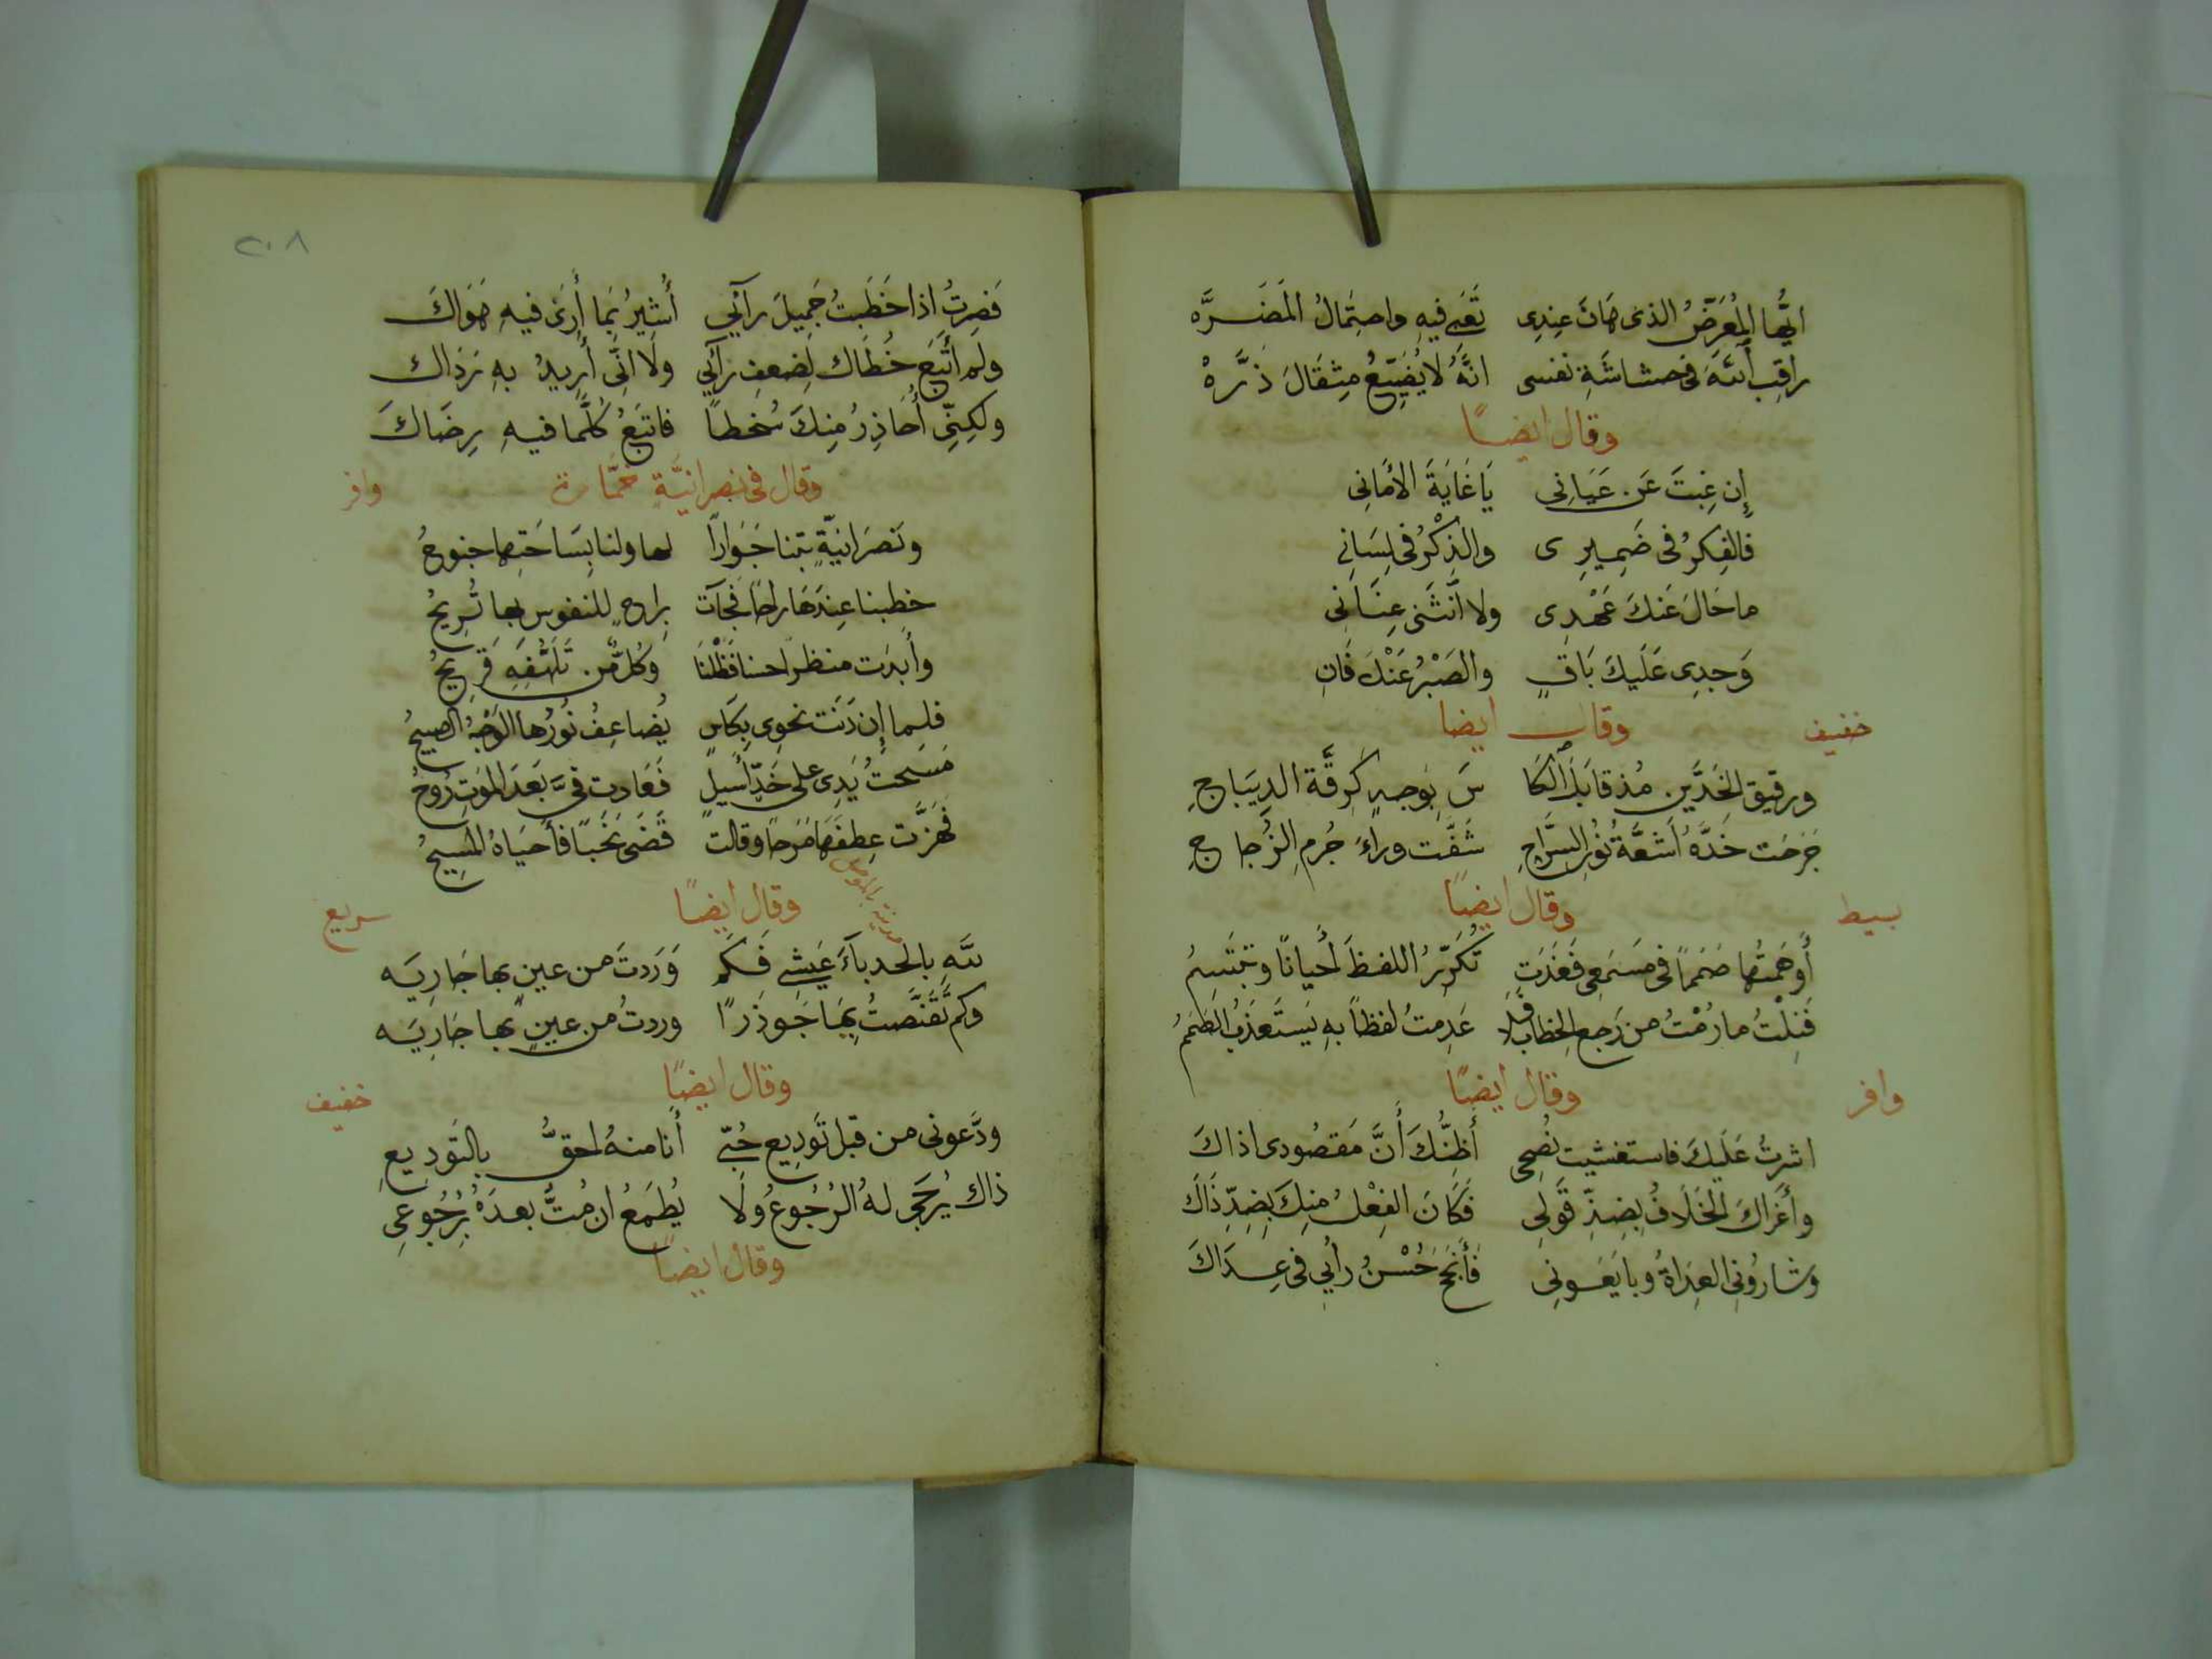 ايُّها المُعرَضُ الذى هَانَ عِندِى تَعَبي فيهِ واحتِمَالُ المَضَرَّه
راقِبِ ٱللهَ فى حشاشَةِ نفسى انَّهُ لا يُضَيّعُ مِثقَالَ ذَرَّهْ
وقال ايضًا
إِن غِبتَ عَن عَيَانِى يَا غَايَةَ الأَمَانِى
فالفِكرُ فى ضَمِيرِى والذِكْرُ فى لِسَانِى
ما حَالَ عَنكَ عَهْدِى ولا انَثَنى عِنَانِى
وَجدِى عَلَيكَ بَاقٍ والصَبْرُ عَنْكَ فَانِ
وقال ايضا خفيف
ورقيق الخَدَّين مُذ قابَلَ ٱلكَا سَ بِوَجهٍ كَرِقَّة الدِيَباجِ
جَرَحَت خَدَّهُ اَشعَّةُ نُورِ السِّرَاجِ شَفَّت وراءَ جُرمِ الزُجاجِ
وقال ايضًا بسيط
أَوهَمتُها صَمَماً فى مَسمَعِى فَغَدَت تُكَرّرُ اللفظَ أَحيانًا وتبتَسِمُ
فَنِلْتُ ما رُمْتُ من رَجعِ الخطابِ فَلَا عَدِمتُ لفظاً بهِ يَستَعذَبُ الصَمَمُ
وقال ايضًا وافر
اشرتُ عَلَيكَ فاستغشيت نُصحِى أَظنُّكَ أَنَّ مَقصُودى اذاكَ
وأَغَراكَ الخَلَافُ بِضِدّ قَولِى فَكَانَ الفِعْلُ منِكَ بِضِدِّ ذَاكَ
وشاروُنِى العِدَاةُ وبايَعَونِى فَأَنجَحَ حُسْنُ رأيي فى عِدَاكَ
٢٠٨
فَصِرتُ اذا خَطَبتُ جَمِيلَ رآيي أُشيِرُ بِمَا أَرىَ فيهِ هَوَاكَ
ولَم أَتَبَع خُطَاك لِضعفِ رآيي ولَا انّى أُرِيدُ بهِ رَدَاك
ولكِنِّى أُحَاذِرُ مِنكَ سُخطاً فاتبَعُ كُلَّما فيهِ رِضَاكَ
وقال فى نصرانيَّةٍ خمَّارة وافر
ونَصرَانيّةٍ بتنا جَوَاراً لها ولنا بِسَاحَتِها جنوحُ
خطبنا عِندَهَا راحاً فَجآت بِراحٍ للنفوس بها تُرِيحُ
وأبدَت منظراً حسنا فَظَلْنَا وَكُلٌّ من تَلَهُّفِهِ قَرِيحُ
فلما إن دَنَت نحوى بِكَاسٍ يُضاعِفُ نُورُها الوَجهُ الصبيحُ
مَسَحتُ يَدِى على خَدٍّ أَسيلٍ فَعَادت فىَّ بَعَدَ المَوَتِ رُوحُ
فهَزَّت عِطفَهَا مَرَحاً وقالت قَضَى نَحَبًا فأَحيَاهُ المَسِيحُ
وقال ايضًا سريع
للَّهِ بالحدبآءَ عَيشِي فَكَم وَرَدتَ من عينٍ بها جَارِيَه
وكم تَقَنَّصتُ بِهَا جَوذَرًا وردتُ من عينٍ بها جَارِيَه
وقال ايضًا خفيف
ودَّعونى من قبل تَودِيع حُبّى أَنا منهُ احقُّ بالتَودِيعِ
ذاك يُرَجَى لهُ الرُجُوعُ ولَا يُطمَعُ ان مُتُّ بعدَهُ بِرُجُوعِى
وقال ايضًا